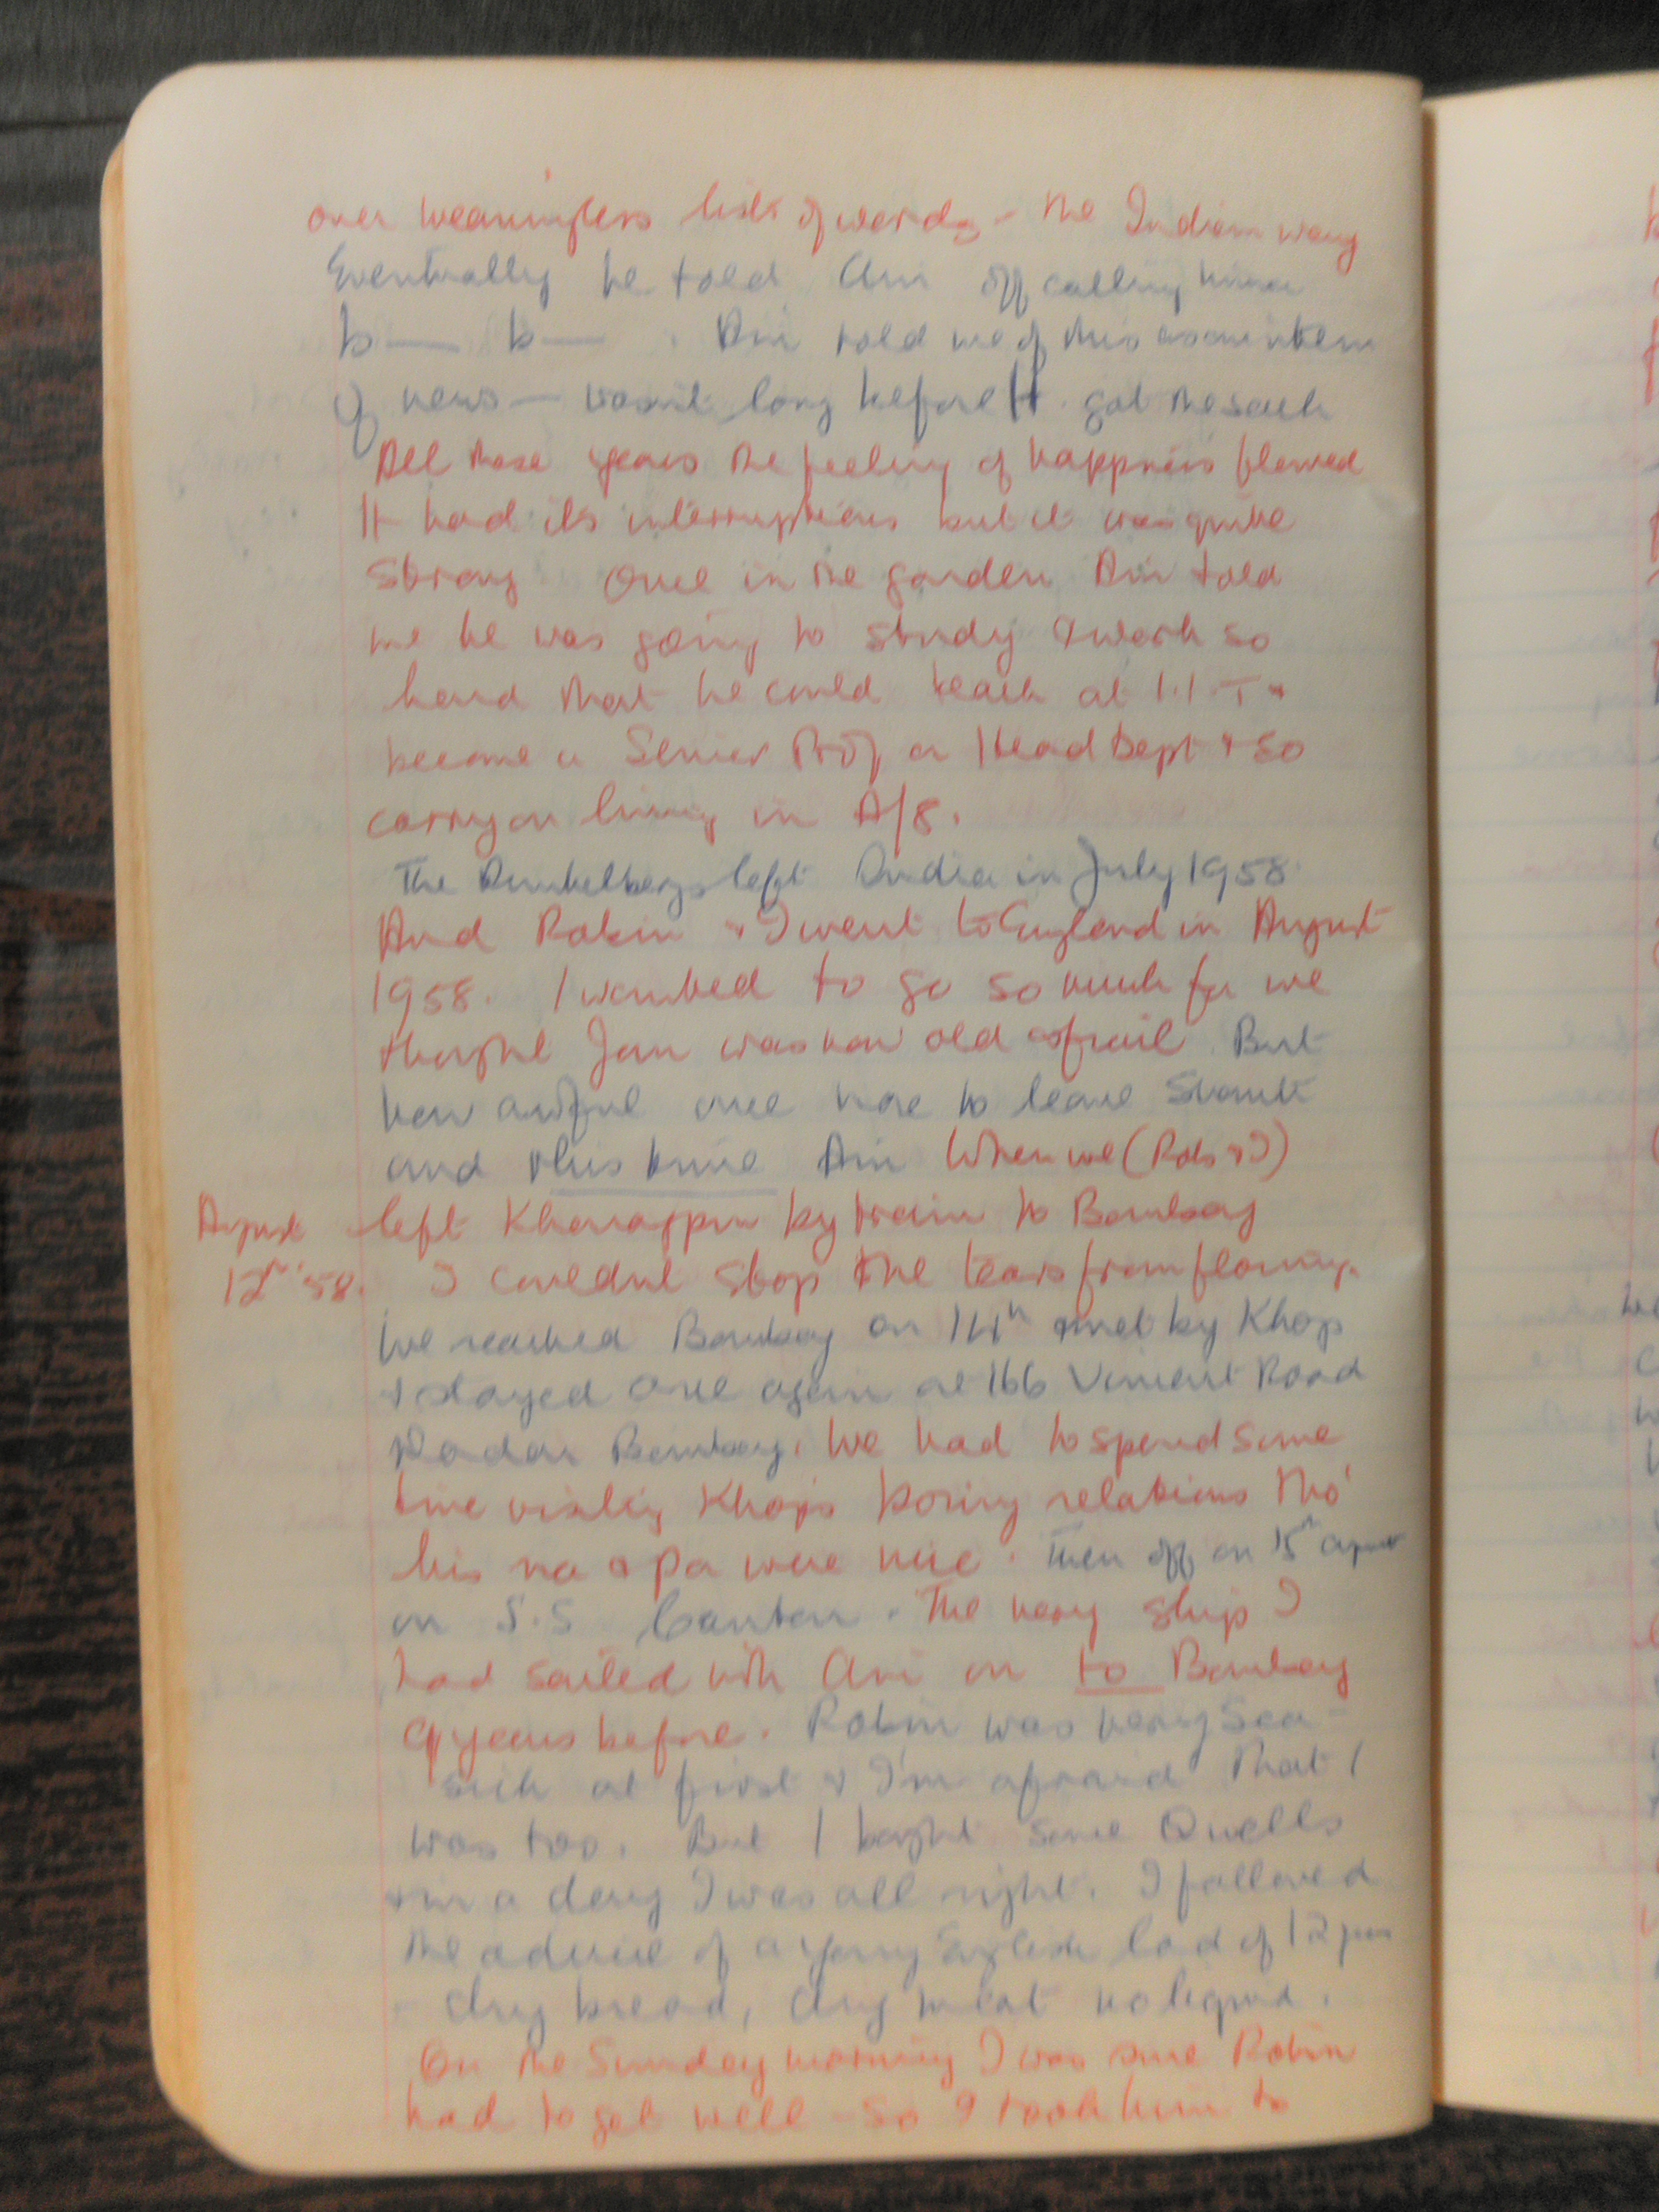 over meaningless lists of words - the Indian way
Eventually he told Ani off calling him a
b— b— . Ani told me of this as an item
of news — wasn't long before H. got the sack
All these years the feeling of happiness flowed
It had its interruptions but it was quite
strong Once in the garden Ani told
me he was going to study & work so
hard that he could teach at I.I.T &
become a Senior Prof or Head Dept & so
carry on living in A/8.
The left India in July 1958.
And Robin & I went to England in August
1958. I wanted to go so much for we
thought Jan was now old & frail. But
how awful once more to leave
and this time Ani When we (Rob & I)
August left Kharagpur by train to Bombay
12th '58. I couldnt stop the tears from flowing.
We reached Bombay on 14th & met by Khop
& stayed once again at 166 Vincent Road
Dadar Bombay. We had to spend some
time visiting Khop's boring relations tho'
his ma & pa were nice. Then off on 15th August
on S.S Canton. The very ship I
had sailed with Ani on to Bombay
9 years before. Robin was very sea-
sick at first & I'm afraid that I
was too. But I bought some Quells
& in a day I was all right. I followed
the advice of a young English lad of 12 years
- dry bread, dry meat no liquid.
On the Sunday morning I was sure Robin
had to get well - so I took him to